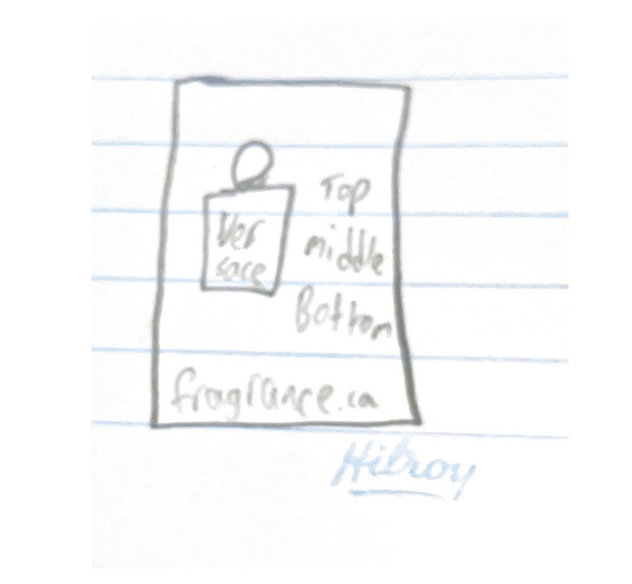 Ver
sace
Top
middle
Bottom
fragrance.ca
Hilroy